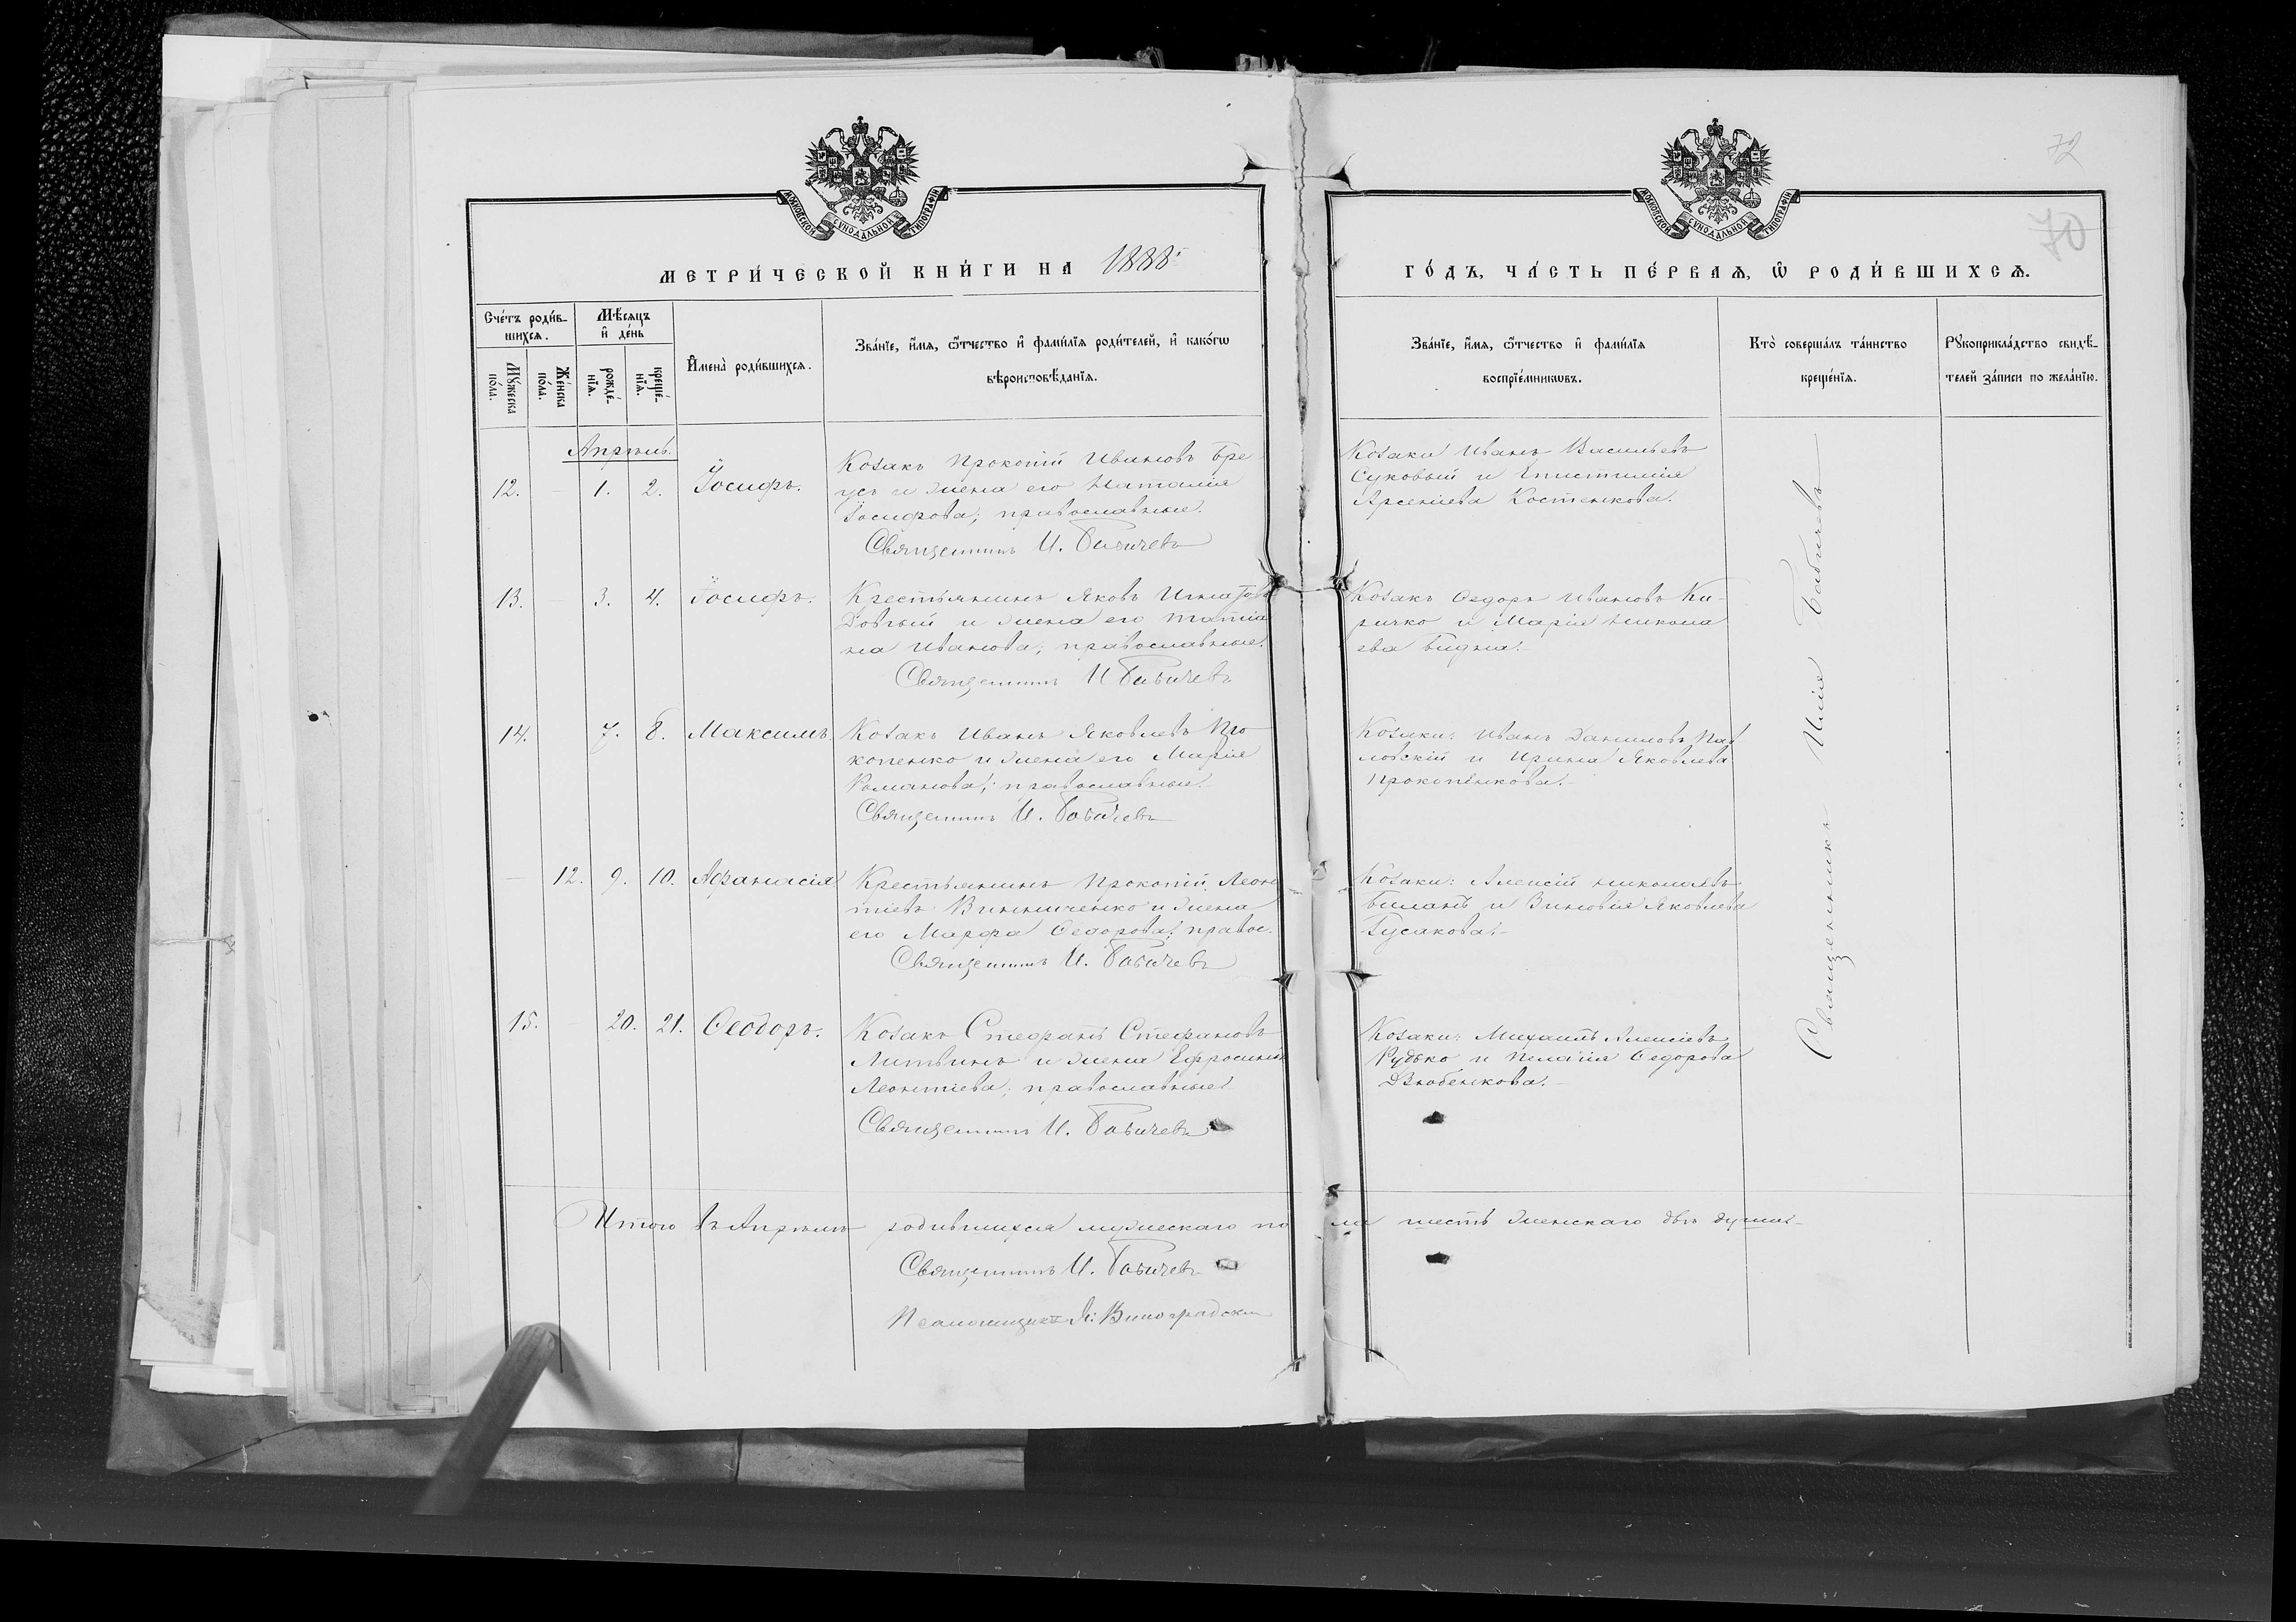 72
70
МОСКОВСКОЙ СѴНОДАЛЬНОЙ ТИПОГРАФІИ
МОСКОВСКОЙ СѴНОДАЛЬНОЙ ТИПОГРАФІИ
МЕТРИ́ЧЕСКОЙ КНИ́ГИ НА 1888
ГО́ДЪ, ЧА́СТЬ ПЕ́РВАѦ, Ѡ҆ РОДИ́ВШИХСѦ.
Сче́тъ роди́в-
шихсѧ.
Мѣ́сѧцъ
и҆ де́нь
Мꙋ́жеска
по́ла.
Же́нска
по́ла.
рожде́-
нїѧ.
креще́-
нїѧ.
И҆мена̀ роди́вшихсѧ.
Зва́нїе, и҆́мѧ, ѻ҆́тчество и҆ фами́лїѧ роди́телей, и҆ како́гѡ
вѣроисповѣ́данїѧ.
Зва́нїе, и҆́мѧ, ѻ҆́тчество и҆ фами́лїѧ
воспрїе́мникѡвъ.
Кто̀ соверша́лъ та́инство
креще́нїѧ.
Рꙋкоприкла́дство свидѣ́-
телей за́писи по жела́нїю.
Апрѣль.
12. — 1. 2. Іосифъ.
Козакъ Прокопій Ивановъ Бре-
усъ и жена его Наталія
Іосифова; православные.
Священникъ И. Бабичевъ
Козаки Иванъ Васильевъ
Суковый и Епистимія
Арсеніева Костенкова.
13. — 3. 4. Іосифъ.
Крестьянинъ Яковъ Игнатовъ
Довгый и жена его Татіа
на Иванова; православные.
Священникъ И Бабичевъ
Козакъ Ѳедоръ Ивановъ Ки-
ричко и Марія Никола
ева Бидна.
14. 7. 8. Максимъ.
Козакъ Иванъ Яковлевъ Про
копенко и жена его Марія
Романова; православные.
Священникъ И. Бабичевъ
Козаки: Иванъ Даниловъ Пав
ловскій и Ирина Яковлева
Прокопенкова.
— 12. 9. 10. Афанасія
Крестьянинъ Прокопій Леон
тіевъ Винниченко и жена
его Марфа Ѳедорова; правос.
Священникъ И. Бабичевъ
Козаки: Алексій Николаевъ
Биланъ и Зиновія Яковлева
Гусакова.
15. — 20. 21. Ѳеодоръ.
Козакъ Стефанъ Стефановъ
Литвинъ и жена Ефросинія
Леонтіева; православные
Священникъ И. Бабичевъ
Козаки: Михаилъ Алексіевъ
Рудько и Пелагія Ѳедорова
Дзюбенкова.
Священникъ Илія Бабичевъ
Итого въ Апрѣлѣ родившихся мужескаго по ла шесть женскаго двѣ души
Священникъ И. Бабичевъ
Псаломщикъ Виноградски